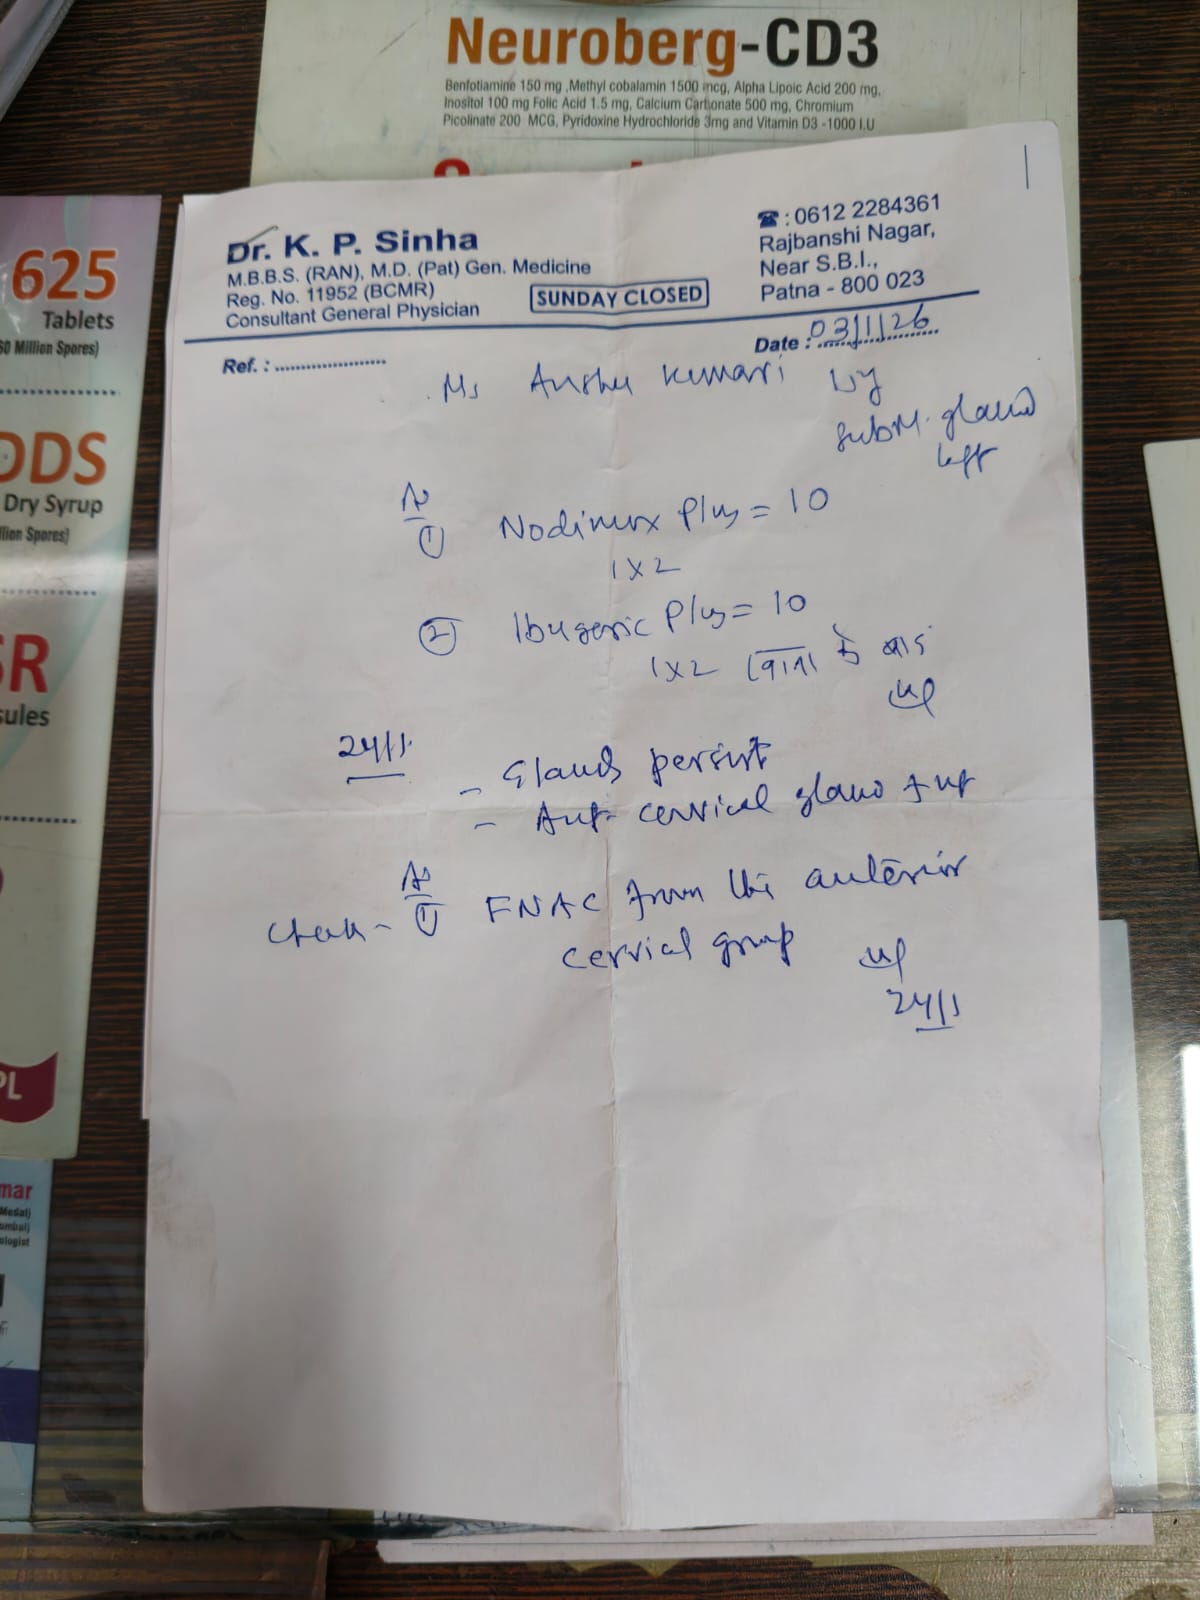 Neuroberg-CD3
Benfotiamine 150 mg ,Methyl cobalamin 1500 mcg, Alpha Lipoic Acid 200 mg,
Inositol 100 mg Folic Acid 1.5 mg, Calcium Carbonate 500 mg, Chromium
Picolinate 200 MCG, Pyridoxine Hydrochloride 3mg and Vitamin D3 -1000 I.U
Dr. K. P. Sinha
M.B.B.S. (RAN), M.D. (Pat) Gen. Medicine
Reg. No. 11952 (BCMR)
Consultant General Physician
SUNDAY CLOSED
☎ : 0612 2284361
Rajbanshi Nagar,
Near S.B.I.,
Patna - 800 023
Ref. : ....................
Date : 03/1/26
Ms Anshu Kumari
subm. gland
left
① Plus = 10
1 x 2
② Ibugesic Plus = 10
1 x 2 खाना के बाद
24/1
- Glands persist
- Ant cervical gland
① FNAC from the anterior
cervical group
24/1
625
Tablets
50 Million Spores)
DDS
Dry Syrup
llion Spores)
SR
sules
PL
mar
Medal)
ologist